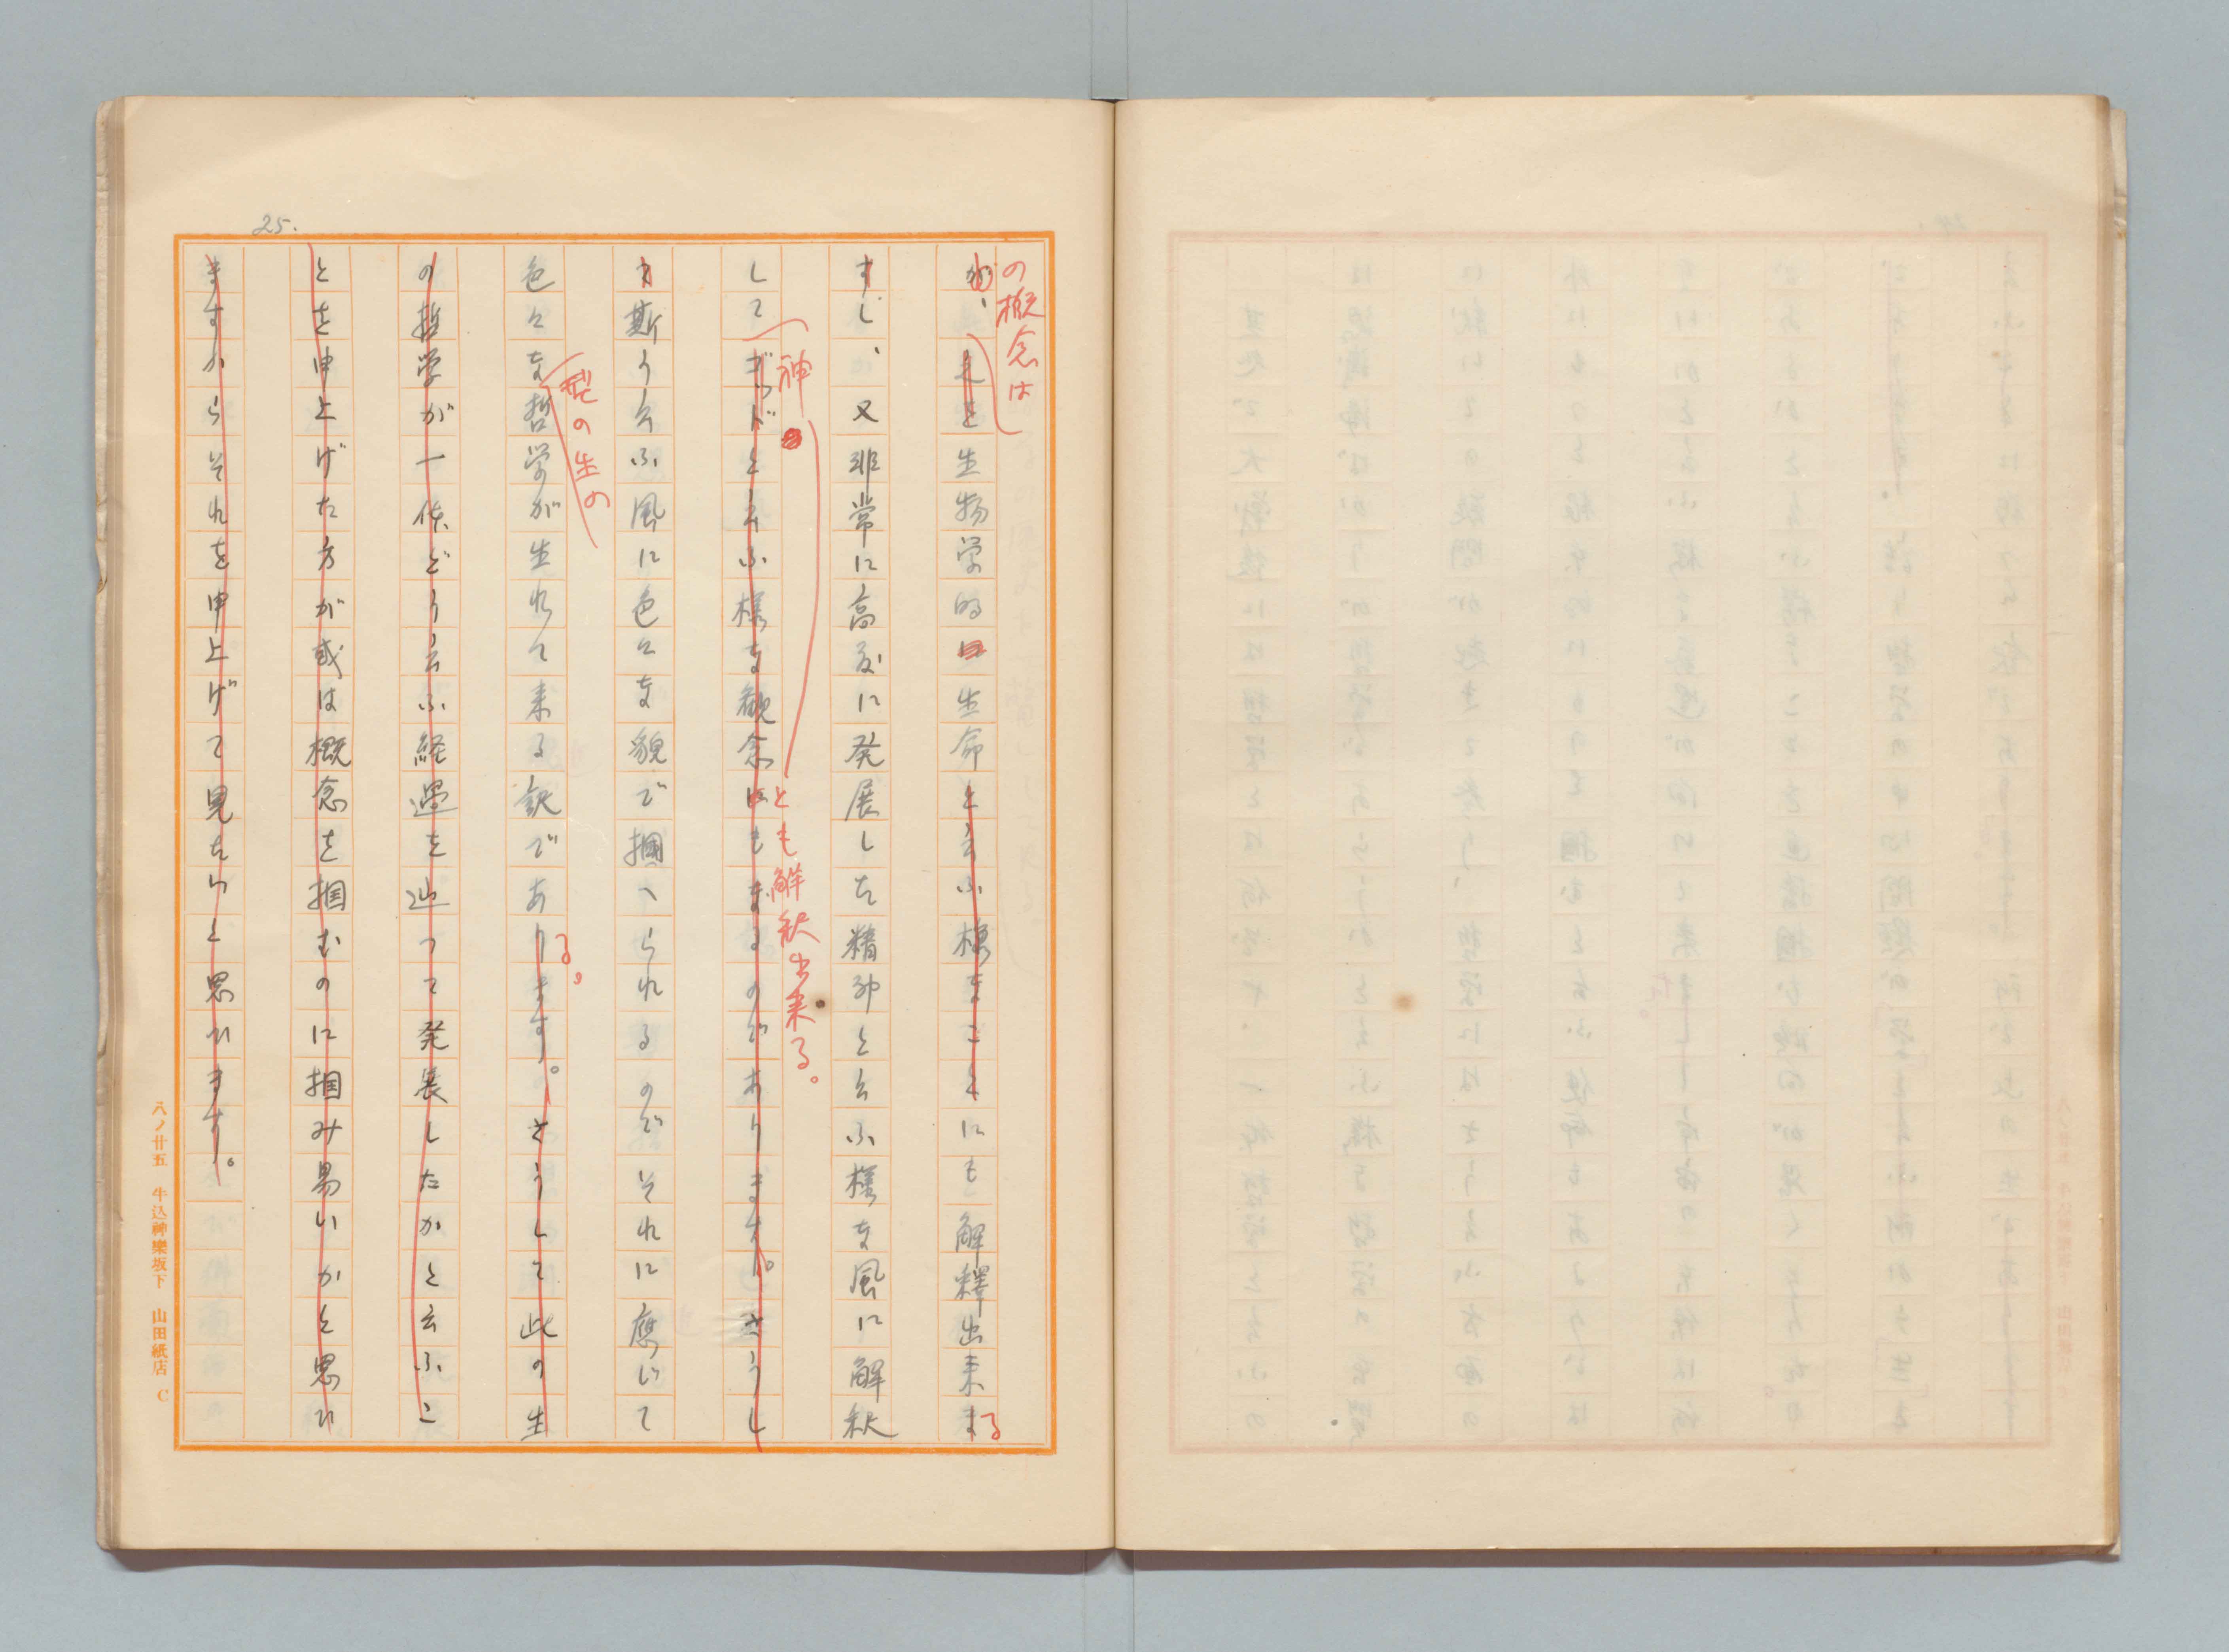 25.
の概念は
が、之を生物学的に生命と云ふ様なことにも解釋出来まる
すし、又非常に高度に発展した精神と云ふ様な風に解釈
神
とも解釈出来る。
してゴッドと云ふ様な観念にもなるのであります。さうし
て斯う云ふ風に色々な貌で掴へられるのでそれに應じて
型の生の
色々な哲学が生れて来る訳であります。さうして此の生
る。
の哲学が一体どう云ふ経過を辿つて発展したかと云ふこ
とを申上げた方が或は概念を掴むのに掴み易いかと思ひ
ますからそれを申上げて見たいと思ひます。
八ノ廿五 牛込神樂坂下 山田紙店 C